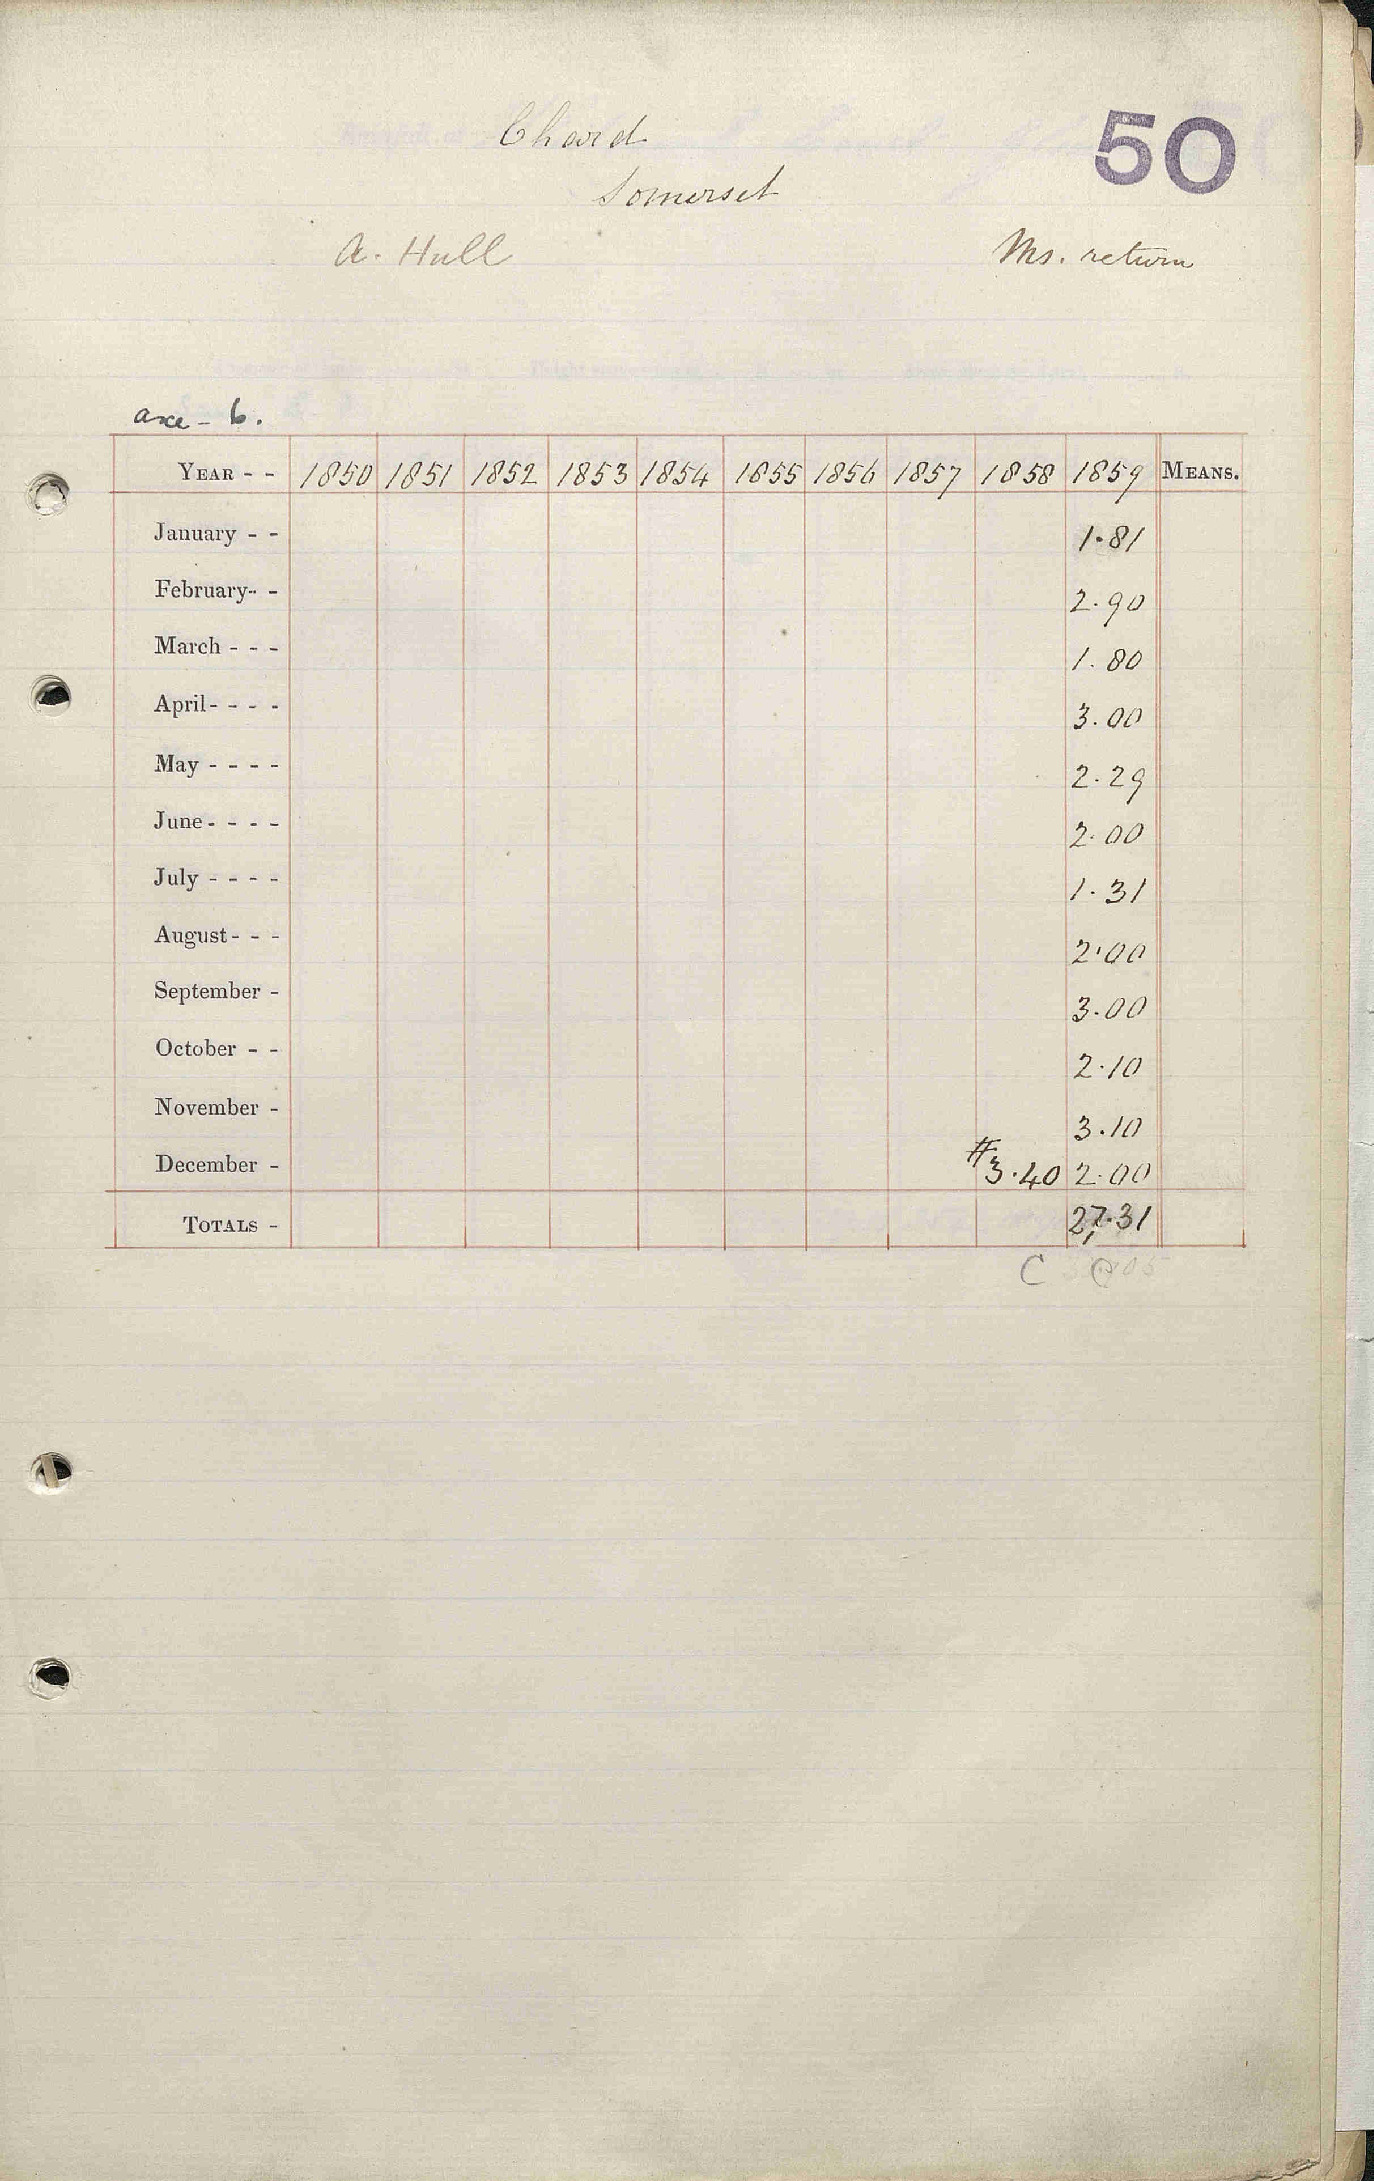 50
Chard
Somerset
A. Hull Ms. return
axe - 6.
YEAR - - 1850 1851 1852 1853 1854 1855 1856 1857 1858 1859 MEANS.
January - - 1.81
February - - 2.90
March - - - 1.80
April - - - - 3.00
May - - - - 2.29
June - - - - 2.00
July - - - - 1.31
August - - - 2.00
September - 3.00
October - - 2.10
November - 3.10
December - #3.40 2.00
TOTALS - 27.31
C C